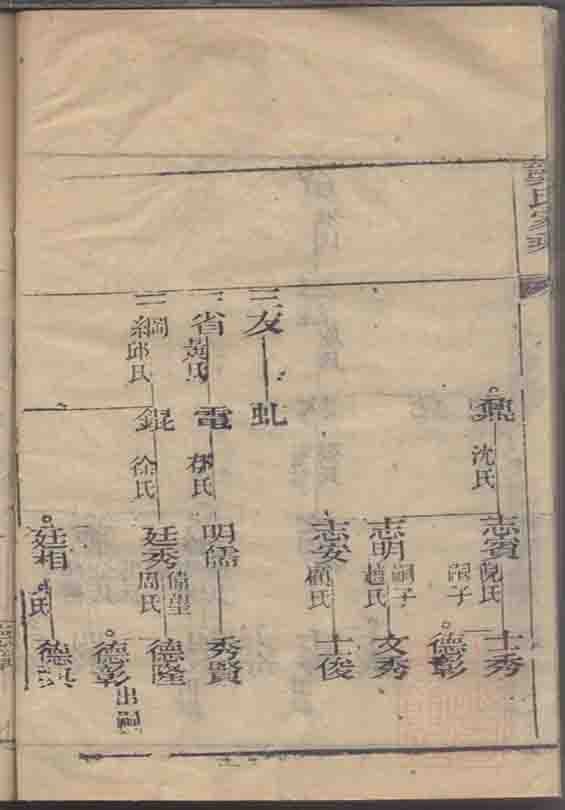 氏家乘
沈氏
志賓 倪氏
士秀
嗣子
德彰
志明 嗣子 趙氏
文秀
志安 顧氏
士俊
三友
虬
三省 黃氏
電
明儒
秀賢
三綱 邱氏
錕 徐氏
廷秀 儒望 周氏
德隆
德彰 出嗣
廷相 氏
德